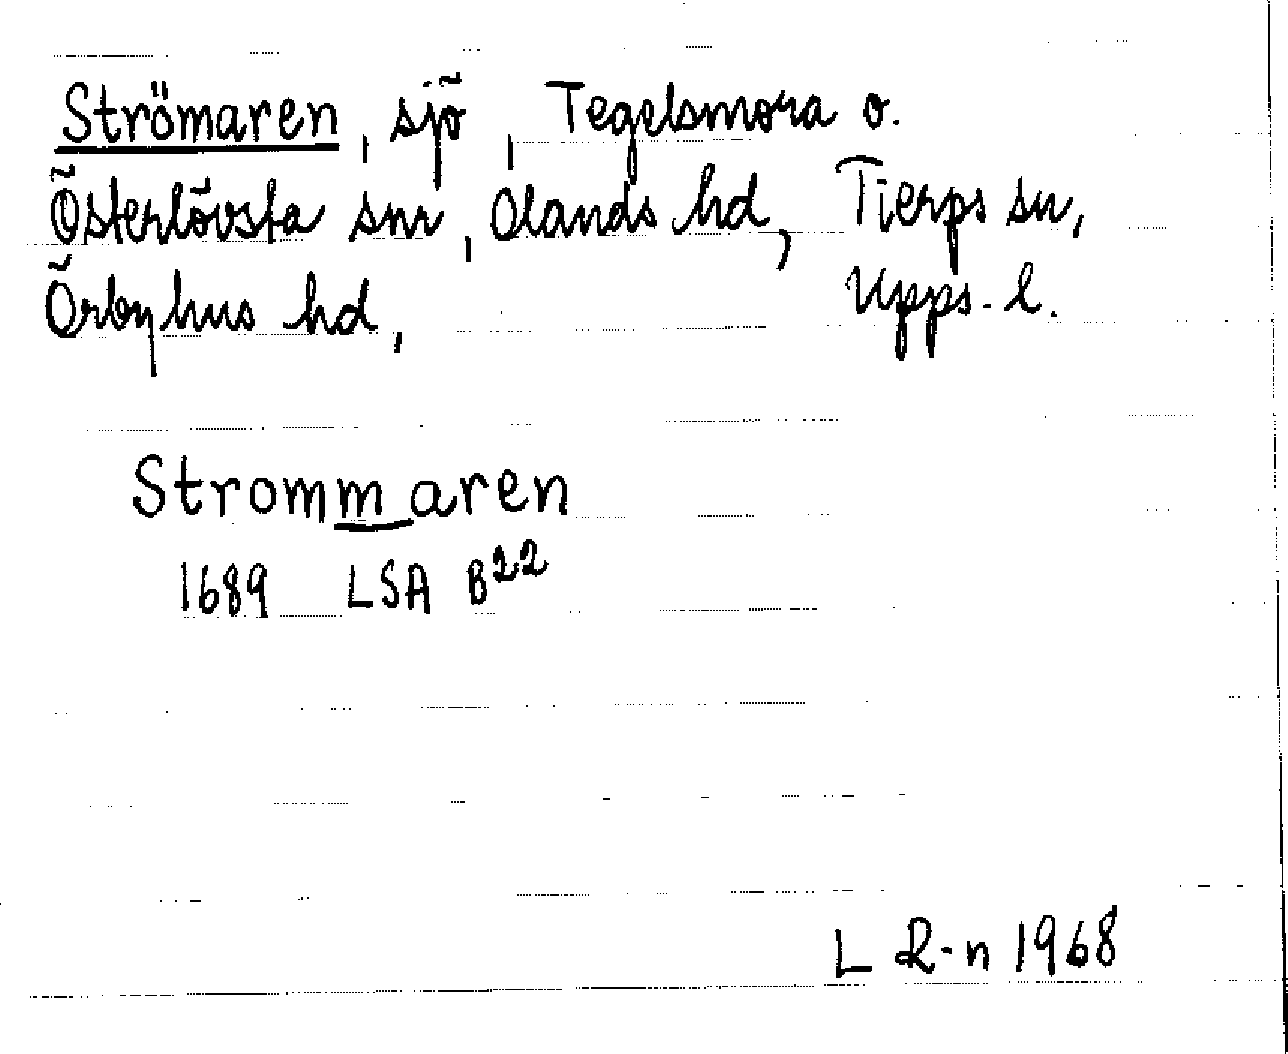 Strömaren, sjö, Tegelsmora o.
Österlövsta snr, Olands hd, Tierps sn,
Örbyhus hd, Upps. l.
Strommaren
1689 LSA B22
L R-n 1968